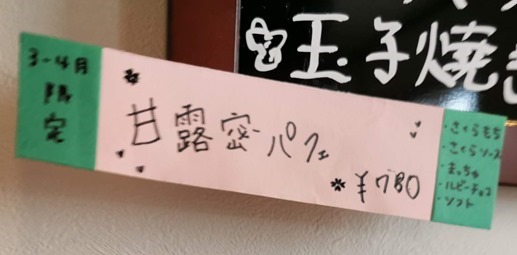 玉子焼き
3-4月
限
定
甘露密パフェ
¥780
・さくらもち
・さくらソース
・まっちゃ
・ルビーチョコ
・ソフト